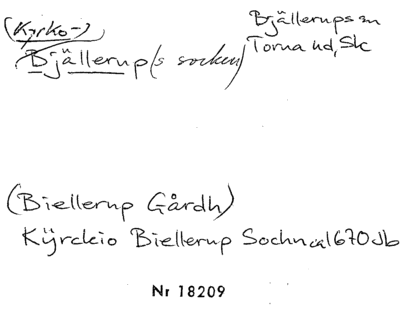 (Kyrko-)
Bjällerup(s socken)
Bjällerups sn
Torna hd, Sk
(Biellerup Gårdh)
Kÿrckio Biellerup Sochn ca 1670 Jb
Nr 18209